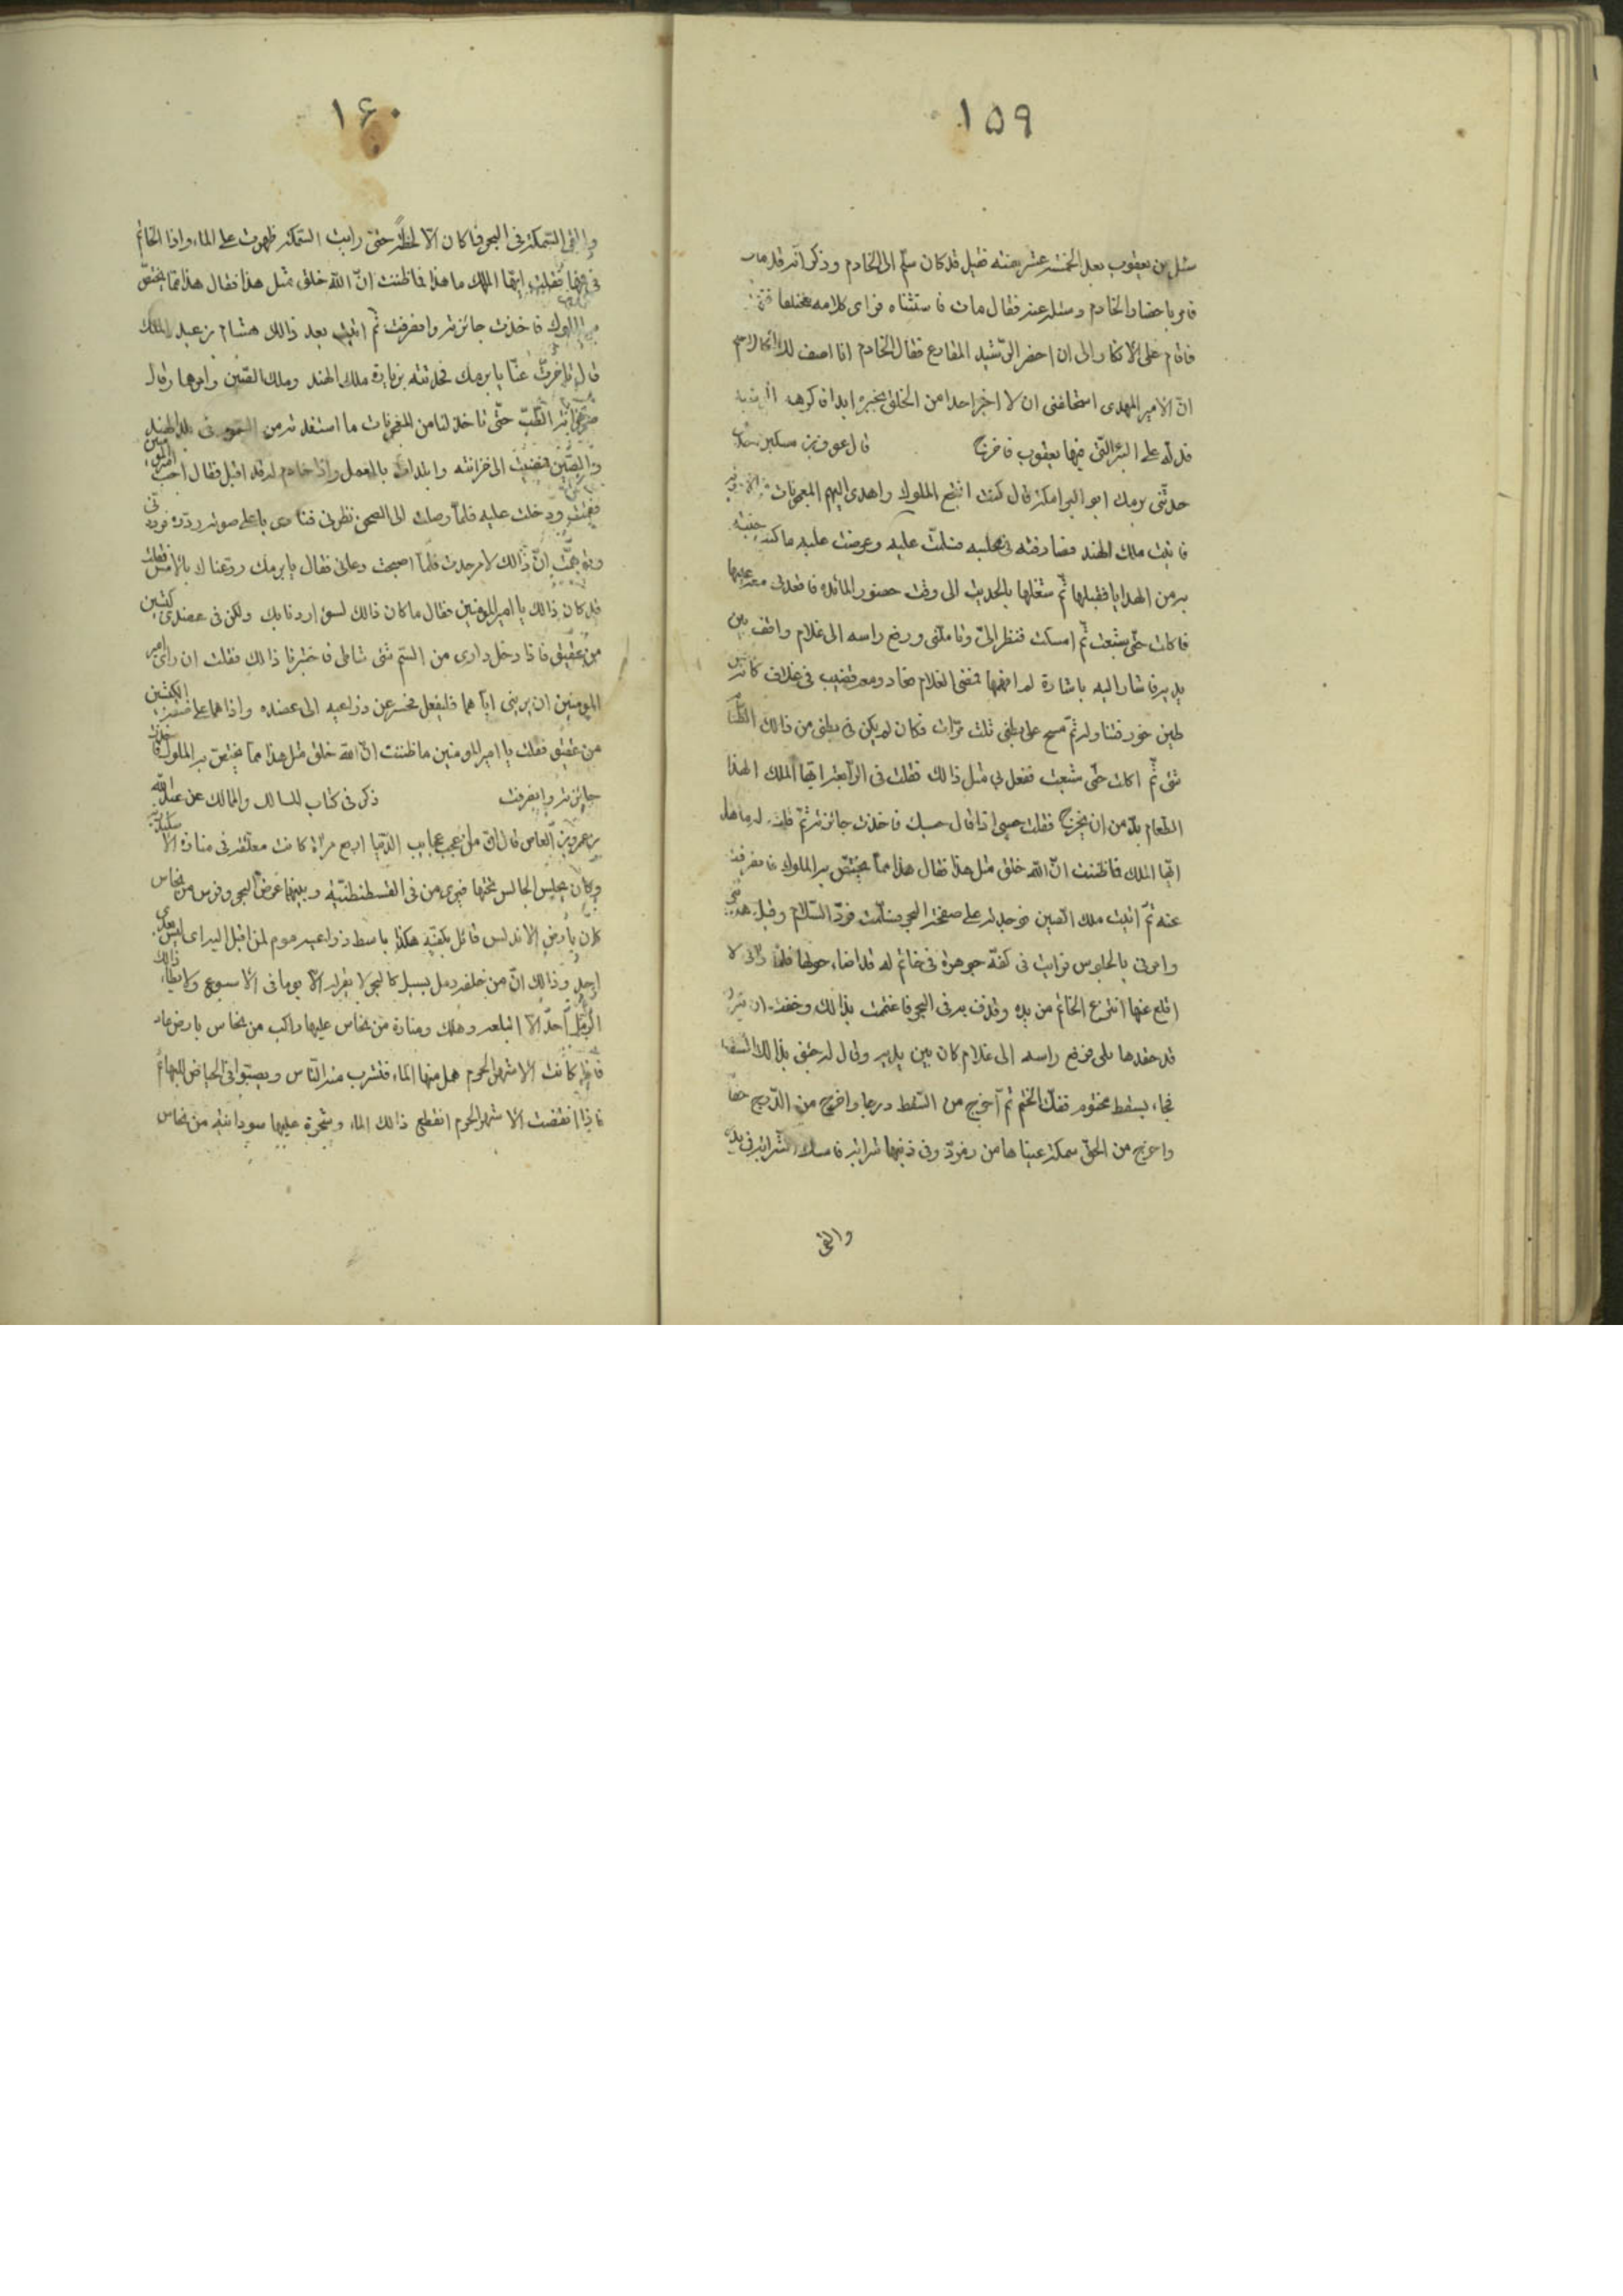 ١٥٩
سئل عن يعقوب بعد الخمسة عشر سنة فقيل قد كان سلّم الى الخادم وذكر انّه قد مات
فامر باحضار الخادم وسئله عنه فقال مات فاستثناه فراى كلامه مختلفا
فاقام على الانكار الى ان احضر الرّشيد المقارع فقال الخادم انا اصف لك
انّ الامير المهدى استحلفنى ان لا اخبر احدا من الخلق بخبره ابدا
فدلّه على البئر الّتى فيها يعقوب فاخرج قال عمرو بن
حدّثنى برمك ابو البرامكة قال كنت انتجع الملوك واهدى اليهم المعجونات
فاتيت ملك الهند فصادفته فى مجلسه فسلّمت عليه وعرضت عليه ما كنت جئته
به من الهدايا فقبلها ثمّ شغلها بالحديث الى وقت حضور المائدة فاقعدنى معه عليها
فاكلت حتّى شبعت ثمّ امسكت فنظر الىّ وتاملنى ورفع راسه الى غلام واقف بين
يديه فاشار اليه باشارة لم افهمها فمضى الغلام فعاد ومعه قضيب فى غلاف كانّه
طين خور فتناوله ثمّ مسح على بطنى ثلث مرّات فكان لم يكن فى بطنى من ذالك الطّعام
شئ ثمّ اكلت حتّى شبعت ففعل بى مثل ذالك فقلت فى الرّابعة ايّها الملك لهذا
الطّعام بدّ من ان يخرج فقلت حسبى اذا قال حسبك فاخذت جائزته ثمّ قلت له ما هذا
ايّها الملك فاظننت انّ الله خلق مثل هذا فقال هذا ممّا يختصّ به الملوك فانصرفت
عنه ثمّ اتيت ملك الصّين فوجدته على صفحة البحر فسلّمت فردّ السّلام وقبل هديّتى
وامرنى بالجلوس فرايت فى كفّه جوهرة فى خاتم له قد اضاء حولها فلمّا رانى لا
اقلع عنها انتزع الخاتم من يده وقذف به فى البحر فاغتممت بذالك وخفت ان
قد حقدها على فرفع راسه الى غلام كان بين يديه وقال له جئنى بذالك السّفط
فجاء بسفط مختوم ففكّ الختم ثم اخرج من السّفط درجا واخرج من الدّرج حقّا
واخرج من الحقّ سمكة عيناها من زمرّد وفى ذنبها شرابة فامسك الشّرابة فى يده
والقى
١۶٠
والقى السّمكة فى البحر فما كان الّا لحظة حتّى رايت السّمكة ظهرت على الماء واذا الخاتم
فى فيها فقلت ايّها الملك ما هذا فما ظننت انّ الله خلق مثل هذا فقال هذا ممّا يختصّ
به الملوك فاخذت جائزته وانصرفت ثمّ اتيت بعد ذالك هشام بن عبد الملك
قال تاخّرت عنّا يا برمك فحدّثته بزيارة ملك الهند وملك الصّين وامرهما وقال
خزانة الطّبّ حتّى تاخذ لنا من المعجونات ما استفدته من فى بلد الهند
والصّين فمضيت الى خزانته وابتدات بالعمل واذا خادم له قد اقبل فقال اجب امير المؤمنين
فقمت ودخلت عليه فلمّا وصلت الى الصحن نظرنى فنادى باعلى صوته ردّوه فردّونى
وتوهّمت انّ ذالك لامر حدث فلمّا اصبحت دعانى فقال يا برمك روّعناك بالامس فقلت
قد كان ذالك يا امير المؤمنين فقال ما كان ذالك لسوء اردنا بك ولكن فى عضدى كبشين
من عقيق فاذا دخل دارى من السّم شئ تناطحا فاخبرنا ذالك فقلت ان راى امير
المؤمنين ان يرينى ايّاهما فليفعل فحسر عن ذراعيه الى عضده واذا هما على صفة الكبشين
من عقيق فقلت يا امير المؤمنين ما ظننت انّ الله خلق مثل هذا ممّا يختصّ به الملوك فاخذت
جائزته وانصرفت ذكر فى كتاب المسالك والممالك عن عبد الله
بن عمرو بن العاص قال انّ من اعجب عجايب الدّنيا اربع مراة كانت معلّقة فى منارة الاسكندريّة
وكان يجلس الجالس تحتها فيرى من فى القسطنطنيّة وبينهما عرض البحر وفرس من نحاس
كان بارض الاندلس قائل بكفّيه هكذا باسط ذراعيه مرحوم لمن اقبل اليه اى ليس بعدى
احد وذالك انّ من خلفه رمل يسيل كالبحر لا يقرّ له الّا يوما فى الاسبوع ولا يطاء ذالك
الرّمل احد الّا ابتلعه وهلك ومنارة من نحاس عليها راكب من نحاس بارض عاد
فاذا كانت الاشهر الحرم همل منها الماء فتشرب منه النّاس ويصبّوا فى الحياض للبهائم
فاذا انقضت الاشهر الحرم انقطع ذالك الماء وشجرة عليها سودانيّة من نحاس